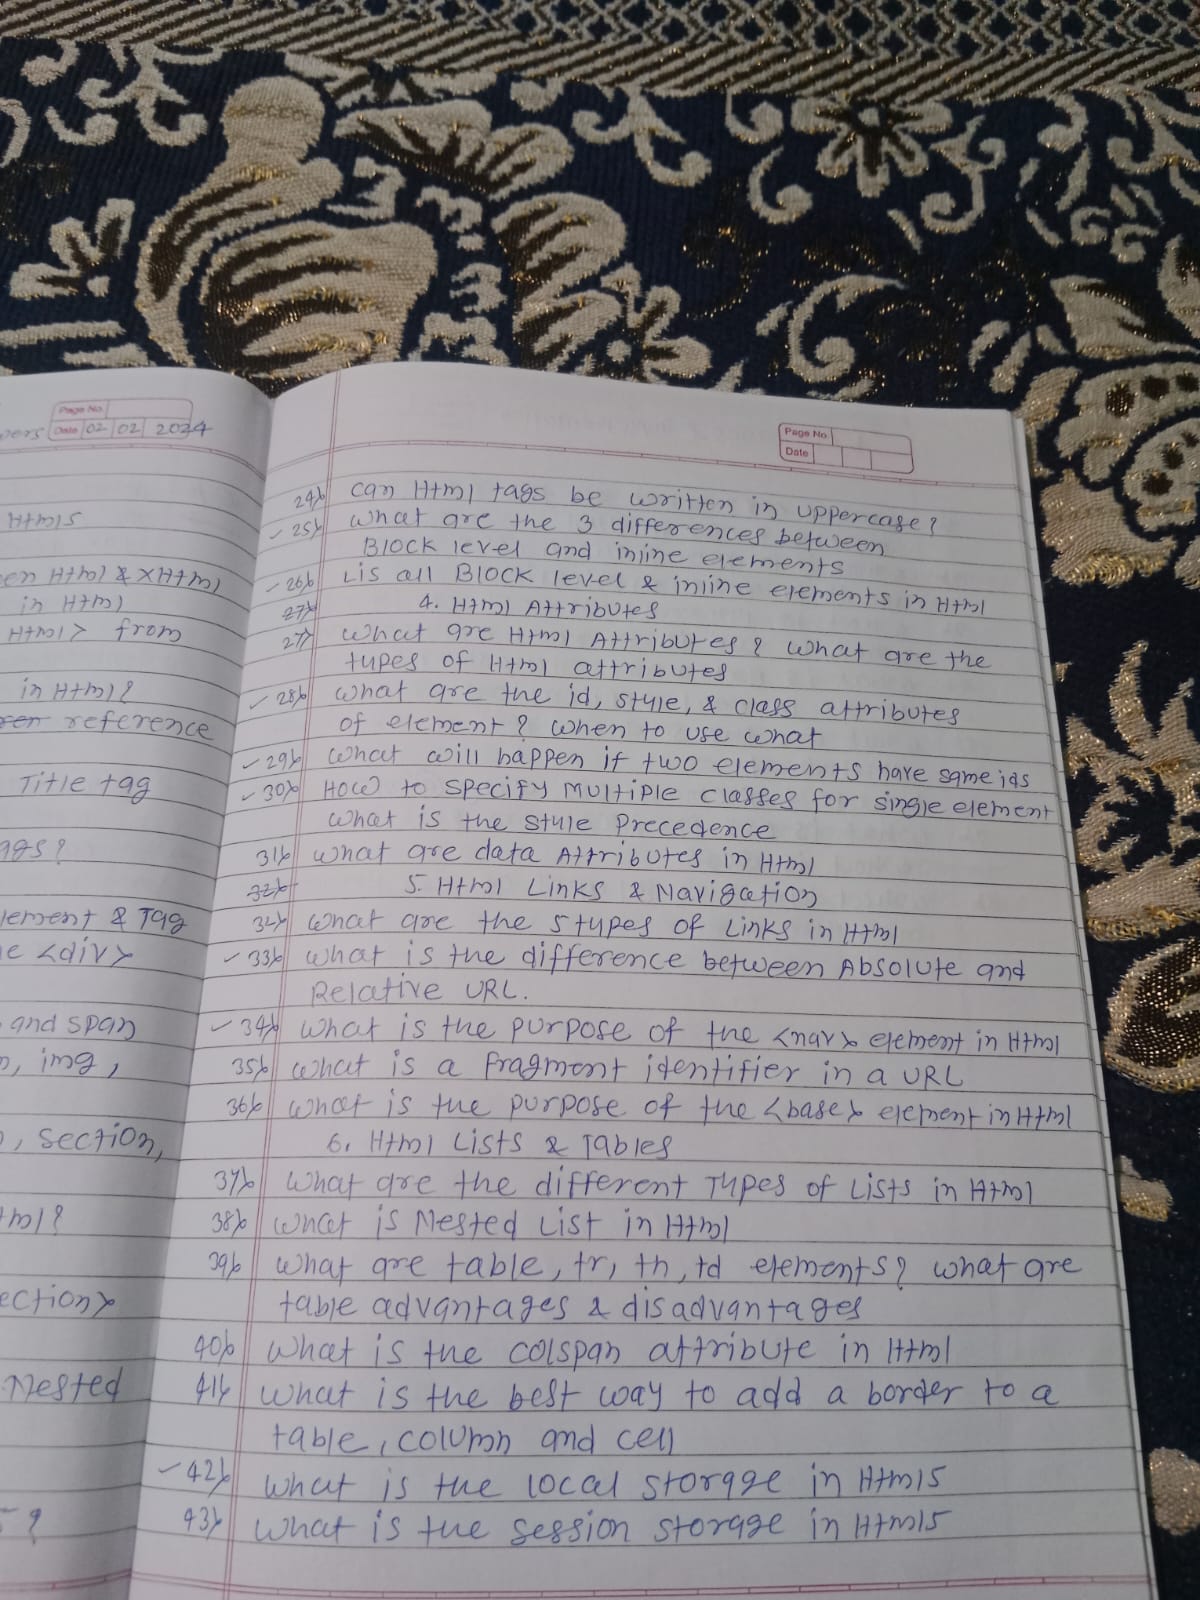 Page No.
Date 02 02 2024
Html5
Html & XHtml
in Html
Html> from
in Html?
reference
Title tag
& Tag
<div>
and span
img,
section,
Nested
?
Page No
Date
24> can Html tags be written in uppercase?
25> what are the 3 differences between
Block level and inline elements
26> Lis all Block level & inline elements in Html
27> 4. Html Attributes
27> what are Html Attributes? what are the
types of Html attributes
28> what are the id, style, & class attributes
of element? when to use what
29> what will happen if two elements have same ids
30> How to specify multiple classes for single element
what is the style Precedence
31> what are data Attributes in Html
32> 5. Html Links & Navigation
32> what are the 5 types of Links in Html
33> what is the difference between Absolute and
Relative URL.
34> what is the purpose of the <nav> element in Html
35> what is a fragment identifier in a URL
36> what is the purpose of the <base> element in Html
6. Html Lists & Tables
37> what are the different Types of Lists in Html
38> what is Nested List in Html
39> what are table, tr, th, td elements? what are
table advantages & disadvantages
40> what is the colspan attribute in Html
41> what is the best way to add a border to a
table, column and cell
42> what is the local storage in Html5
43> what is the session storage in Html5